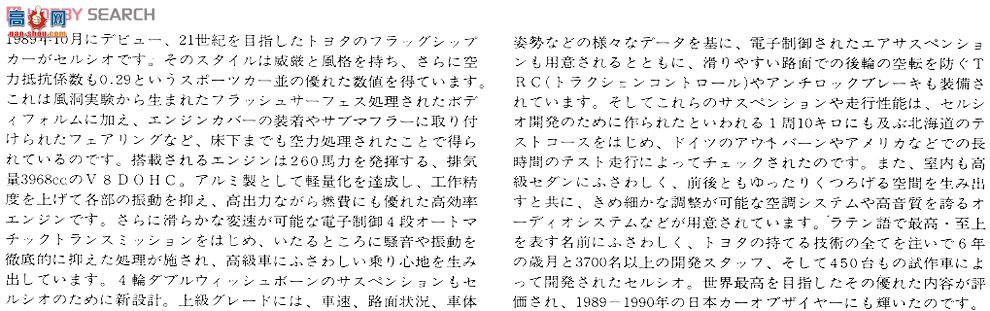 HOBBY SEARCH
高手网
gao-shou.com
1989年10月にデビュー、21世紀を目指したトヨタのフラッグシップ
カーがセルシオです。そのスタイルは威厳と風格を持ち、さらに空
力抵抗係数も0.29というスポーツカー並の優れた数値を得ています。
これは風洞実験から生まれたフラッシュサーフェス処理されたボデ
ィフォルムに加え、エンジンカバーの装着やサブマフラーに取り付
けられたフェアリングなど、床下までも空力処理されたことで得ら
れているのです。搭載されるエンジンは260馬力を発揮する、排気
量3968ccのV8DOHC。アルミ製として軽量化を達成し、工作精
度を上げて各部の振動を抑え、高出力ながら燃費にも優れた高効率
エンジンです。さらに滑らかな変速が可能な電子制御4段オートマ
チックトランスミッションをはじめ、いたるところに騒音や振動を
徹底的に抑えた処理が施され、高級車にふさわしい乗り心地を生み
出しています。4輪ダブルウィッシュボーンのサスペンションもセ
ルシオのために新設計。上級グレードには、車速、路面状況、車体
姿勢などの様々なデータを基に、電子制御されたエアサスペンショ
ンも用意されるとともに、滑りやすい路面での後輪の空転を防ぐT
RC(トラクションコントロール)やアンチロックブレーキも装備さ
れています。そしてこれらのサスペンションや走行性能は、セルシ
オ開発のために作られたといわれる1周10キロにも及ぶ北海道のテ
ストコースをはじめ、ドイツのアウトバーンやアメリカなどでの長
時間のテスト走行によってチェックされたのです。また、室内も高
級セダンにふさわしく、前後ともゆったりくつろげる空間を生み出
すと共に、きめ細かな調整が可能な空調システムや高音質を誇るオ
ーディオシステムなどが用意されています。ラテン語で最高・至上
を表す名前にふさわしく、トヨタの持てる技術の全てを注いで6年
の歳月と3700名以上の開発スタッフ、そして450台もの試作車によ
って開発されたセルシオ。世界最高を目指したその優れた内容が評
価され、1989－1990年の日本カーオブザイヤーにも輝いたのです。